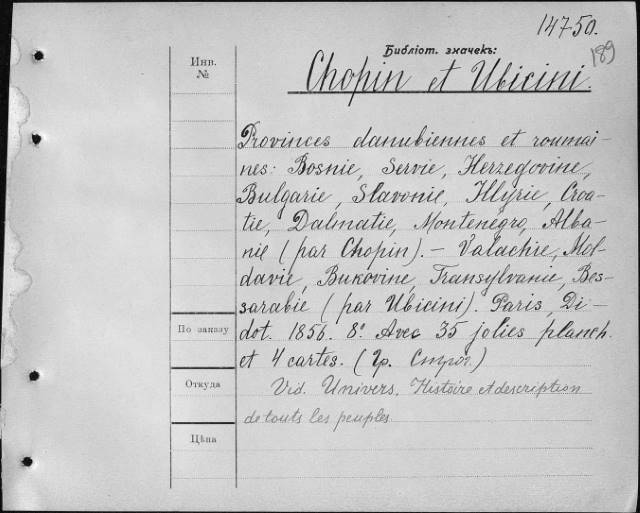 14750.
189
Библіот. значекъ:
Инв.
№
Chopin et Ubicini.
Provinces danubiennes et roumai-
nes: Bosnie, Servie, Herzegovine,
Bulgarie, Slavonie, Illyrie, Croa-
tie, Dalmatie, Montenegro, Alba-
nie (par Chopin). – Valachie, Mol-
davie, Bukovine, Transylvanie, Bes-
sarabie (par Ubicini). Paris, Di-
dot. 1856. 8º. Avec 35 jolies planch.
et 4 cartes. (Гр. Строг.)
Vid. Univers. Histoire et description
de touts les peuples.
По заказу
Откуда
Цѣна